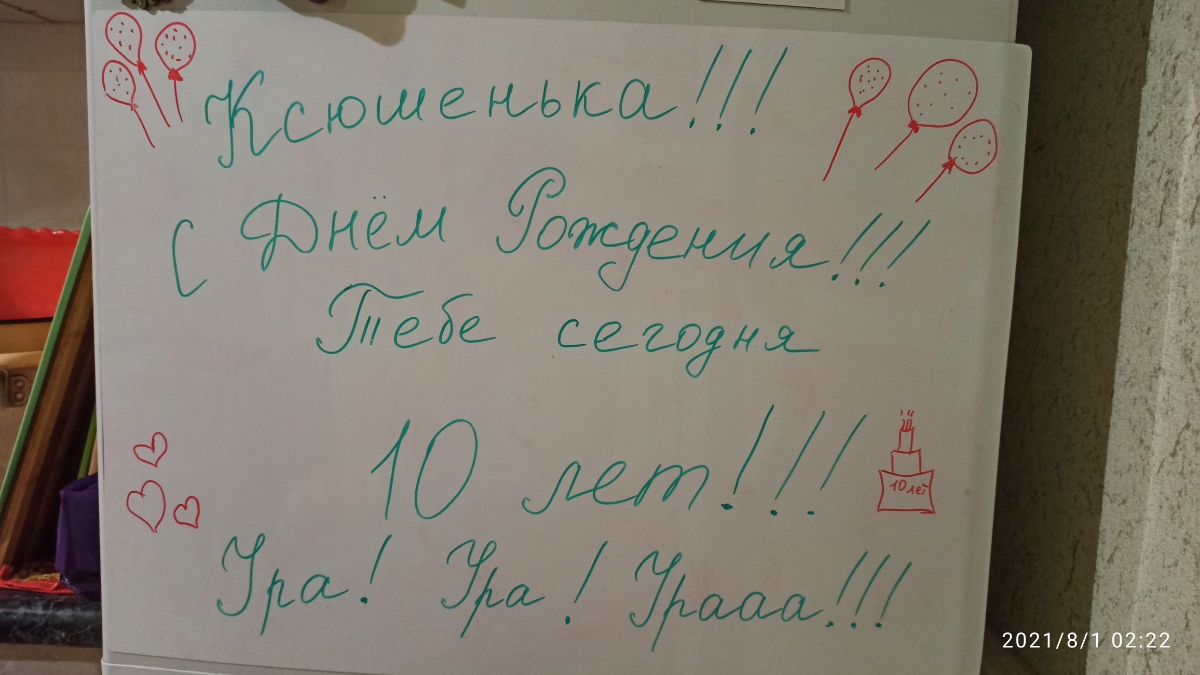 Ксюшенька!!!
С Днём Рождения!!!
Тебе сегодня
10 лет!!!
10 лет
Ура! Ура! Урааа!!!
2021/8/1 02:22